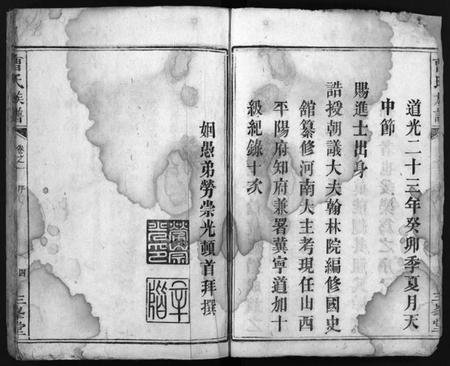 道光二十三年癸卯季夏月天
中節
賜進士出身
誥授朝議大夫翰林院編修國史
舘纂修河南大主考現任山西
平陽府知府兼署冀寧道加十
級紀錄十次
姻愚弟勞崇光頓首拜撰
勞崇光印
曹氏族譜
卷之一
序
四
三奎堂